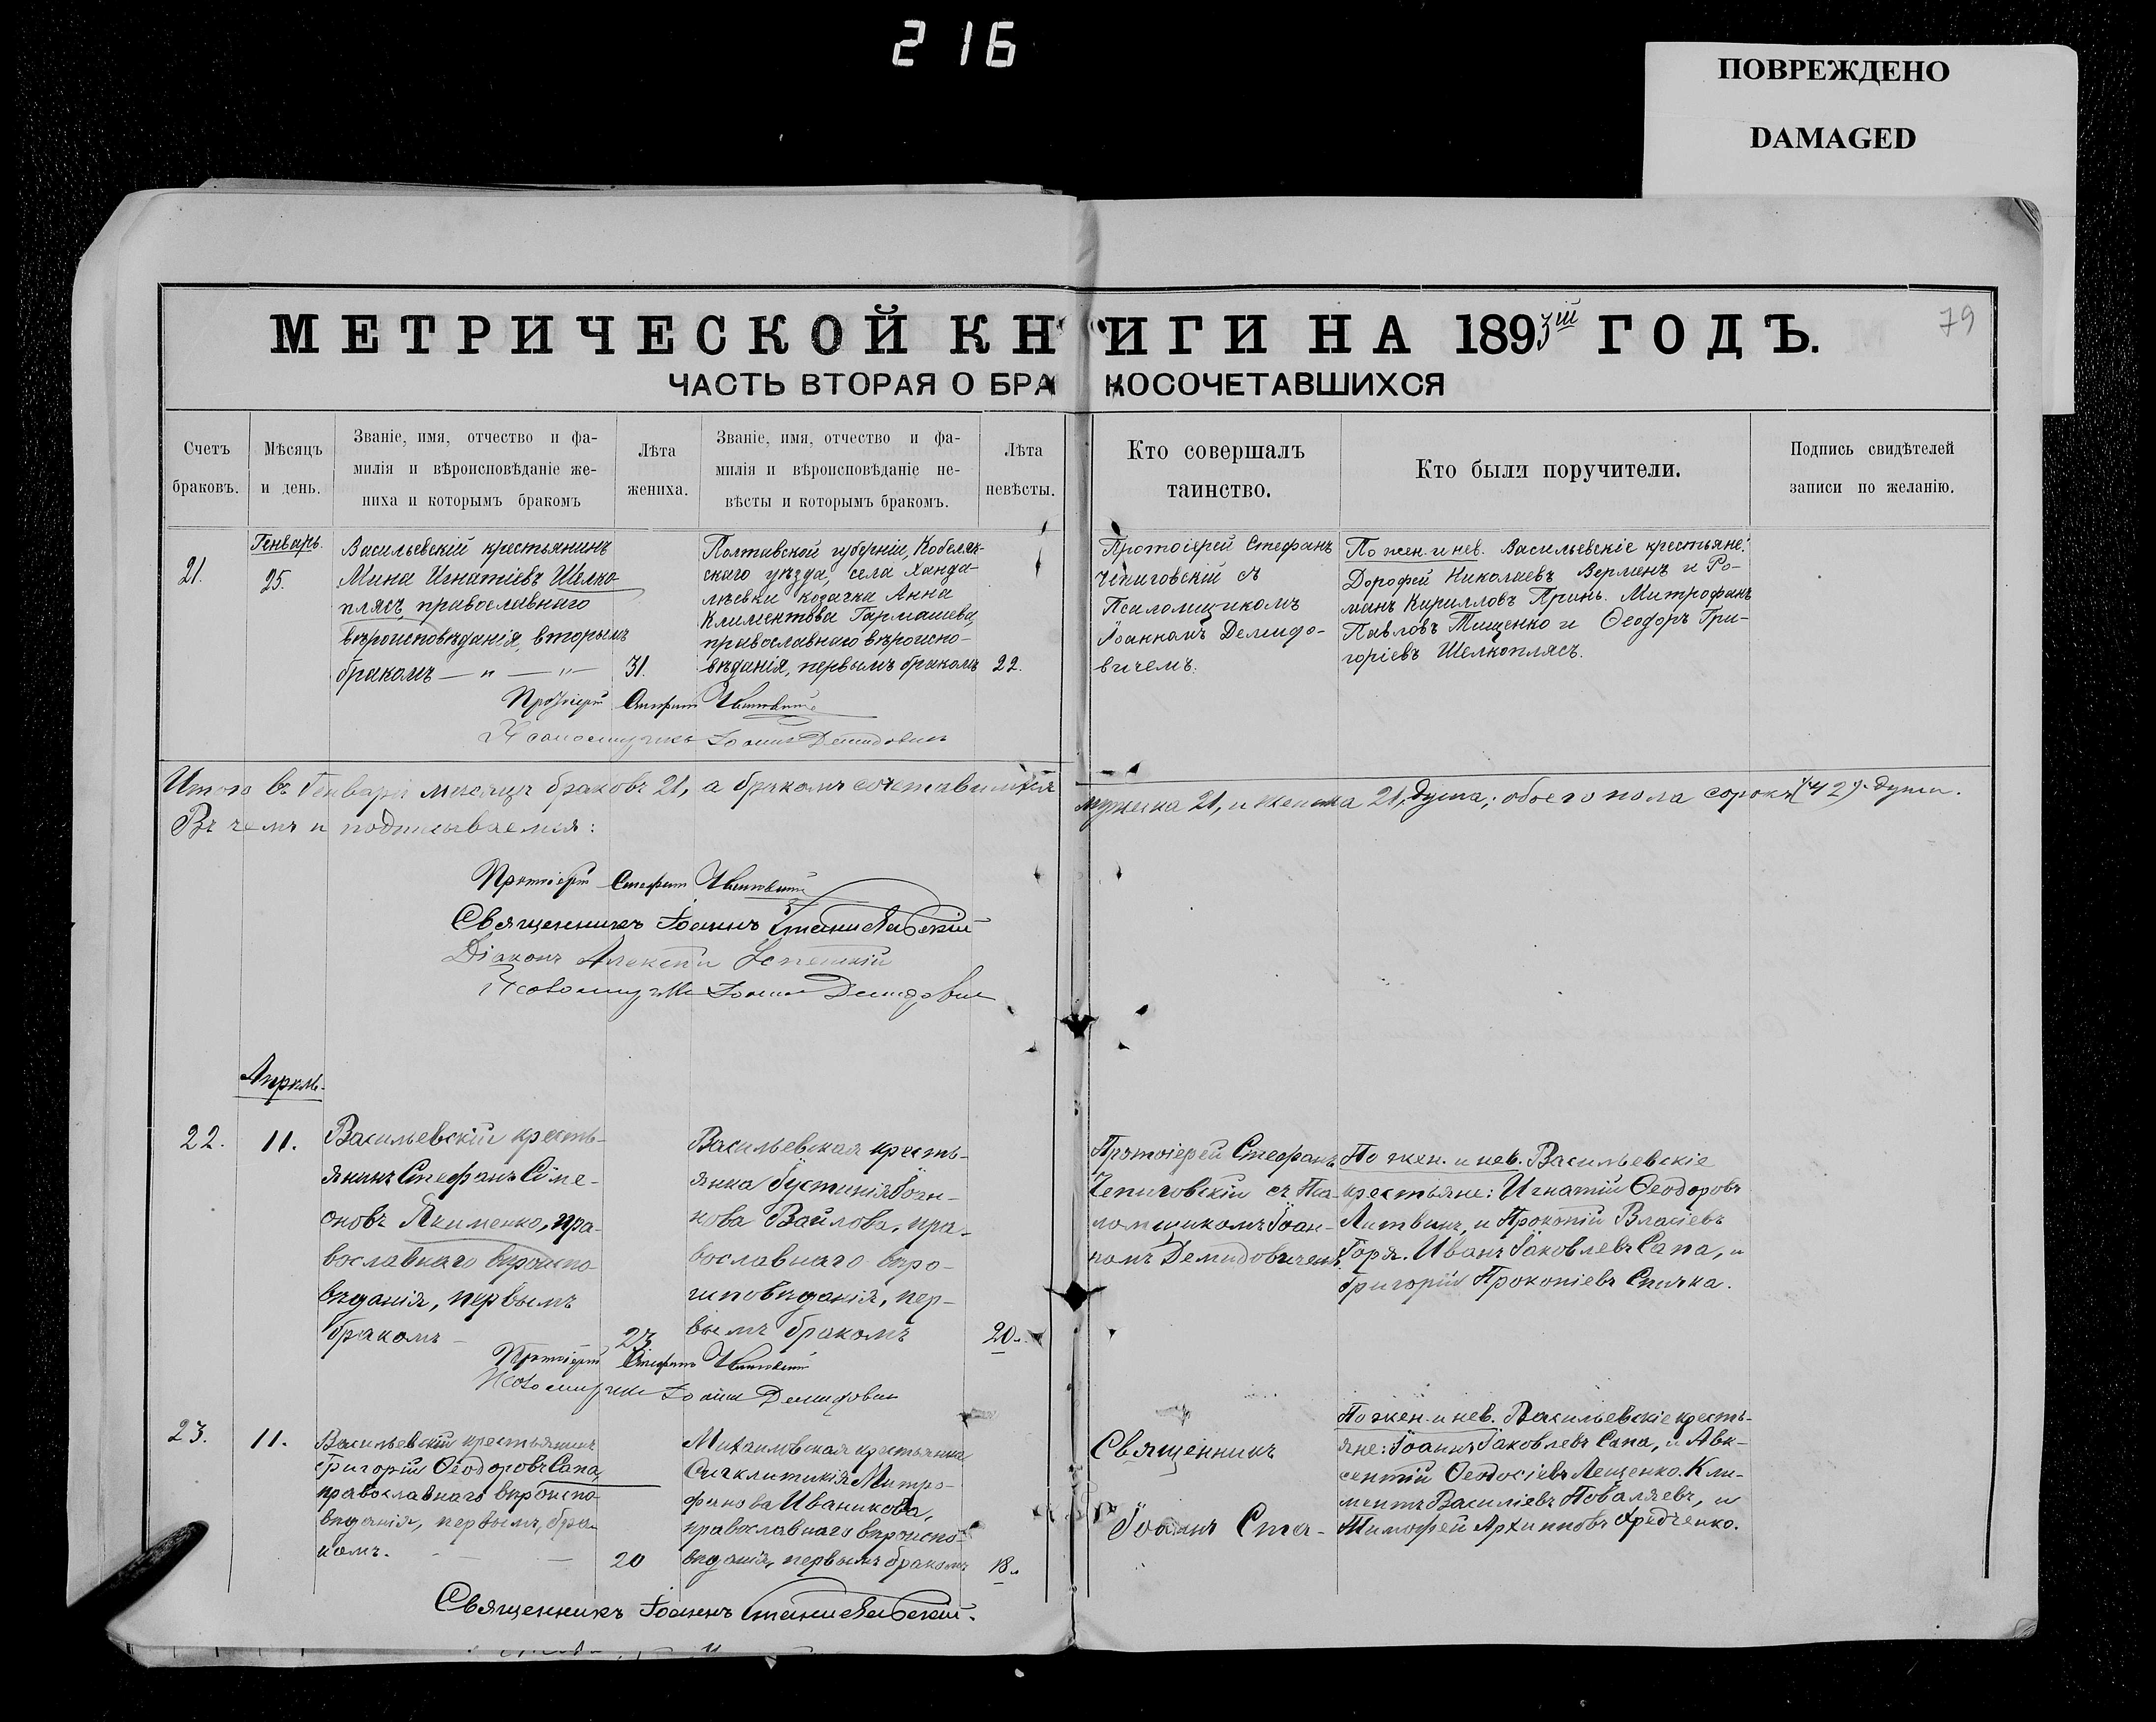 216
ПОВРЕЖДЕНО
DAMAGED
79
МЕТРИЧЕСКОЙ КНИГИ НА 1893ій ГОДЪ.
ЧАСТЬ ВТОРАЯ О БРАКОСОЧЕТАВШИХСЯ
Счетъ браковъ.
Мѣсяцъ и день.
Званіе, имя, отчество и фа-
милія и вѣроисповѣданіе же-
ниха и которымъ бракомъ
Лѣта жениха.
Званіе, имя, отчество и фа-
милія и вѣроисповѣданіе не-
вѣсты и которымъ бракомъ.
Лѣта невѣсты.
Кто совершалъ
таинство.
Кто были поручители.
Подпись свидѣтелей
записи по желанію.
21.
Генварь.
25.
Васильевскій крестьянинъ
Мина Игнатіевъ Шелко-
плясъ, православнаго
вѣроисповѣданія, вторымъ
бракомъ — „ — „ —
31.
Полтавской губерніи, Кобеляк-
скаго уѣзда, села Ханда-
лѣевки козачка Анна
Климентова Гармашева,
православнаго вѣроиспо-
вѣданія, первымъ бракомъ
22.
Протоіерей Стефанъ
Чепиговскій съ
Псаломщикомъ
Іоанномъ Демидо-
вичемъ.
По жен. и нев. Васильевскіе крестьяне:
Дорофей Николаевъ Верменъ и Ро-
манъ Кирилловъ Принь. Митрофанъ
Павловъ Тищенко и Ѳеодоръ Гри-
горіевъ Шелкоплясъ.
Протоіерей Стефанъ Чепиговскій
Псаломщикъ Іоаннъ Демидовичъ
Итого въ Генварѣ месяцѣ браковъ 21, а бракомъ сочетавшихся мужеска 21, и женска 21, душа; обоего пола сорокъ (42) души.
Въ чемъ и подписываемся:
Протоіерей Стефанъ Чепиговскій
Священникъ Іоаннъ Станиславскій
Діаконъ Алексѣй
Псаломщикъ Іоаннъ Демидовичъ
Апрѣль.
22.
11.
Васильевскій кресть-
янинъ Стефанъ Симе-
оновъ Якименко, пра-
вославнаго вѣроиспо-
вѣданія, первымъ
бракомъ —
23
Васильевская кресть-
янка Іустинія Іоан-
нова Вайлова, пра-
вославнаго вѣро-
исповѣданія, пер-
вымъ бракомъ
20.
Протоіерей Стефанъ
Чепиговскій съ Пса-
ломщикомъ Іоан-
номъ Демидовичемъ.
По жен. и нев. Васильевскіе
крестьяне: Игнатій Ѳеодоровъ
Литвинъ, и Прокопій Власіевъ
Горя. Иванъ Іаковлевъ Сапа, и
Григорій Прокопіевъ Спичка.
Протоіерей Стефанъ Чепиговскій
Псаломщикъ Іоаннъ Демидовичъ
23.
11.
Васильевскій крестьянинъ
Григорій Ѳеодоровъ Сапа,
православнаго вѣроиспо-
вѣданія, первымъ бра-
комъ. — —
20
Михайловская крестьянка
Синклитикія Митро-
фанова Иваникова,
православнаго вѣроиспо-
вѣданія, первымъ бракомъ
18.
Священникъ
Іоаннъ Ста-
По жен. и нев. Васильевскіе кресть-
яне: Іоаннъ Іаковлевъ Сапа, и Авк-
сентій Ѳеодосіевъ Лещенко. Кли-
ментъ Василіевъ Поваляевъ, и
Тимофей Архиповъ Аредченко.
Священникъ Іоаннъ Станиславскій.